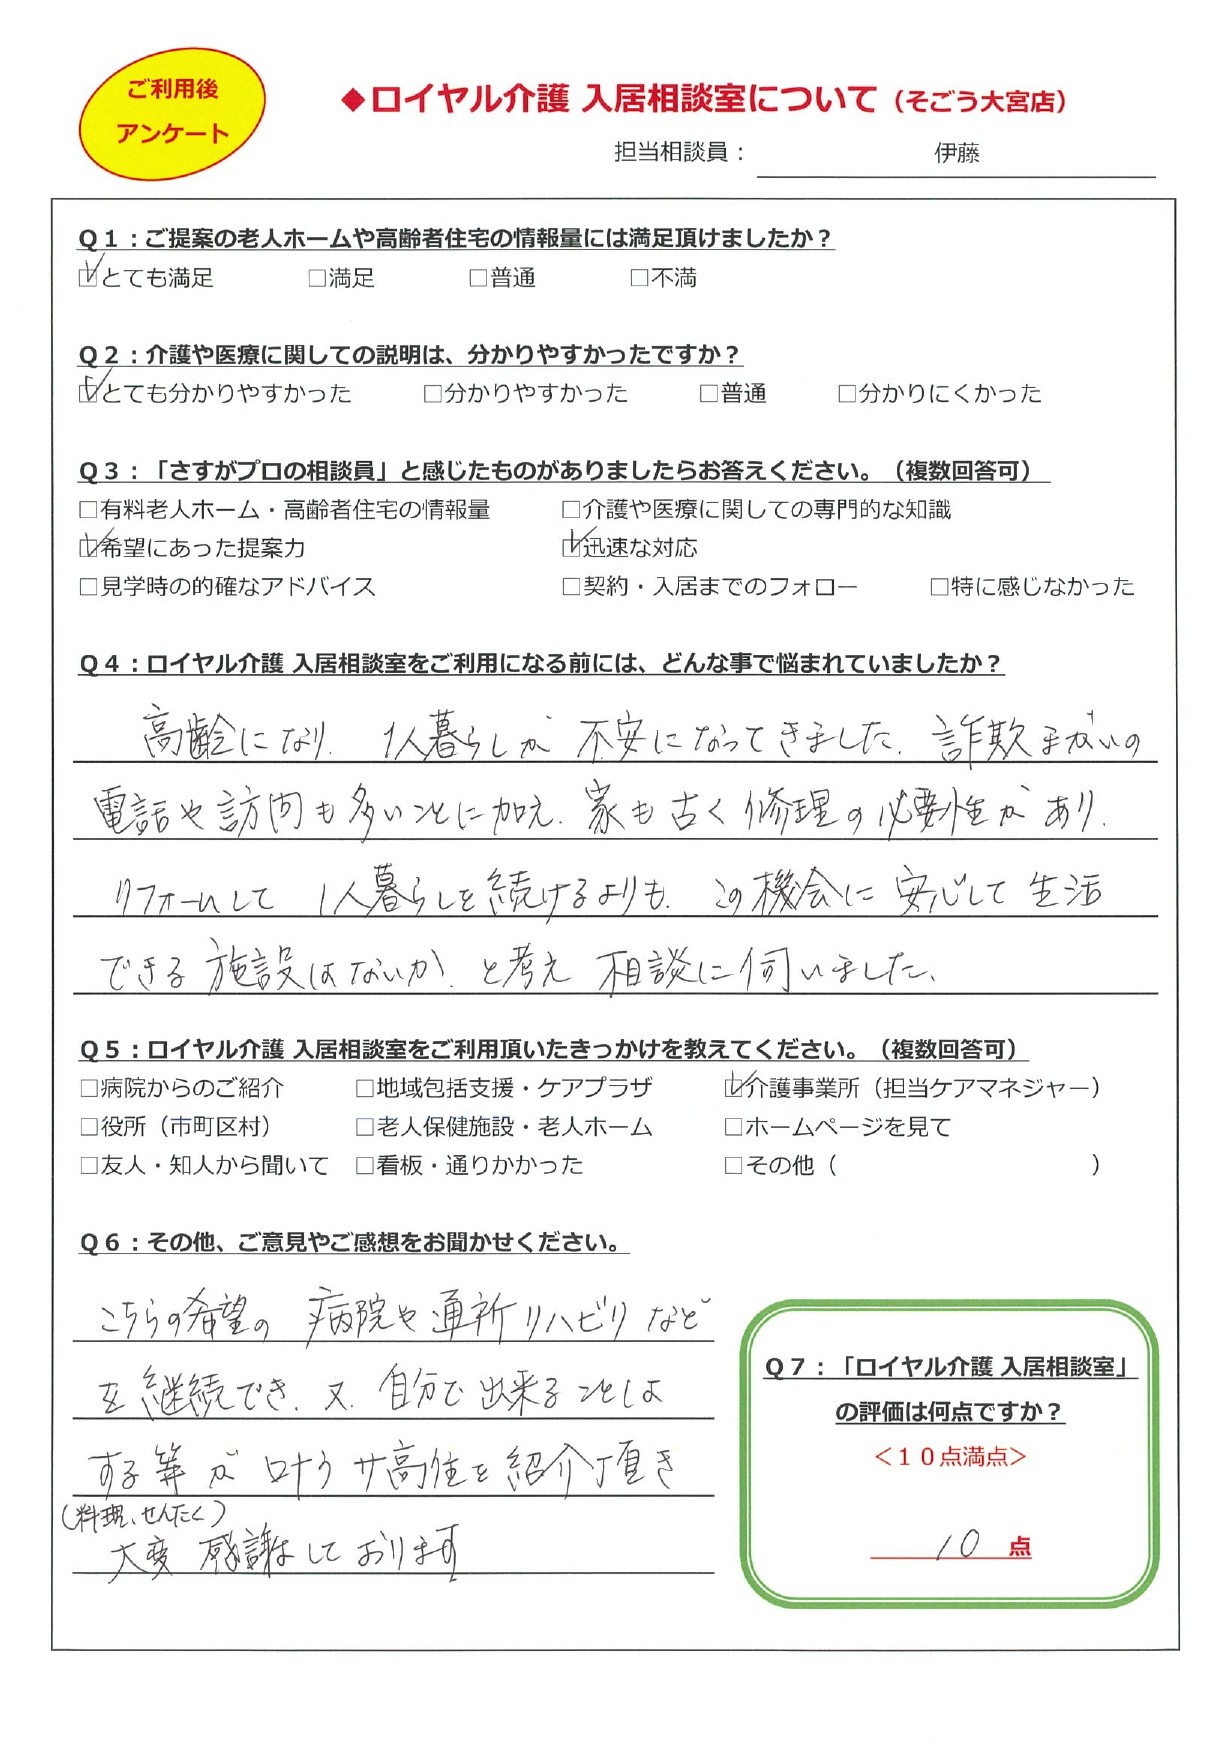 ご利用後
アンケート
◆ロイヤル介護 入居相談室について（そごう大宮店）
担当相談員： 伊藤
Ｑ１：ご提案の老人ホームや高齢者住宅の情報量には満足頂けましたか？
☑とても満足 □満足 □普通 □不満
Ｑ２：介護や医療に関しての説明は、分かりやすかったですか？
☑とても分かりやすかった □分かりやすかった □普通 □分かりにくかった
Ｑ３：「さすがプロの相談員」と感じたものがありましたらお答えください。（複数回答可）
□有料老人ホーム・高齢者住宅の情報量 □介護や医療に関しての専門的な知識
☑希望にあった提案力 ☑迅速な対応
□見学時の的確なアドバイス □契約・入居までのフォロー □特に感じなかった
Ｑ４：ロイヤル介護 入居相談室をご利用になる前には、どんな事で悩まれていましたか？
高齢になり、1人暮らしが不安になってきました。詐欺まがいの
電話や訪問も多いことに加え、家も古く修理の必要性があり、
リフォームして1人暮らしを続けるよりも、この機会に安心して生活
できる施設はないか、と考え相談に伺いました。
Ｑ５：ロイヤル介護 入居相談室をご利用頂いたきっかけを教えてください。（複数回答可）
□病院からのご紹介 □地域包括支援・ケアプラザ ☑介護事業所（担当ケアマネジャー）
□役所（市町区村） □老人保健施設・老人ホーム □ホームページを見て
□友人・知人から聞いて □看板・通りかかった □その他（ ）
Ｑ６：その他、ご意見やご感想をお聞かせください。
こちらの希望の病院や通所リハビリなど
を継続でき、又、自分で出来ることしよ
する等が叶うサ高住を紹介頂き
（料理、せんたく）
大変感謝しております
Ｑ７：「ロイヤル介護 入居相談室」
の評価は何点ですか？
＜１０点満点＞
10 点